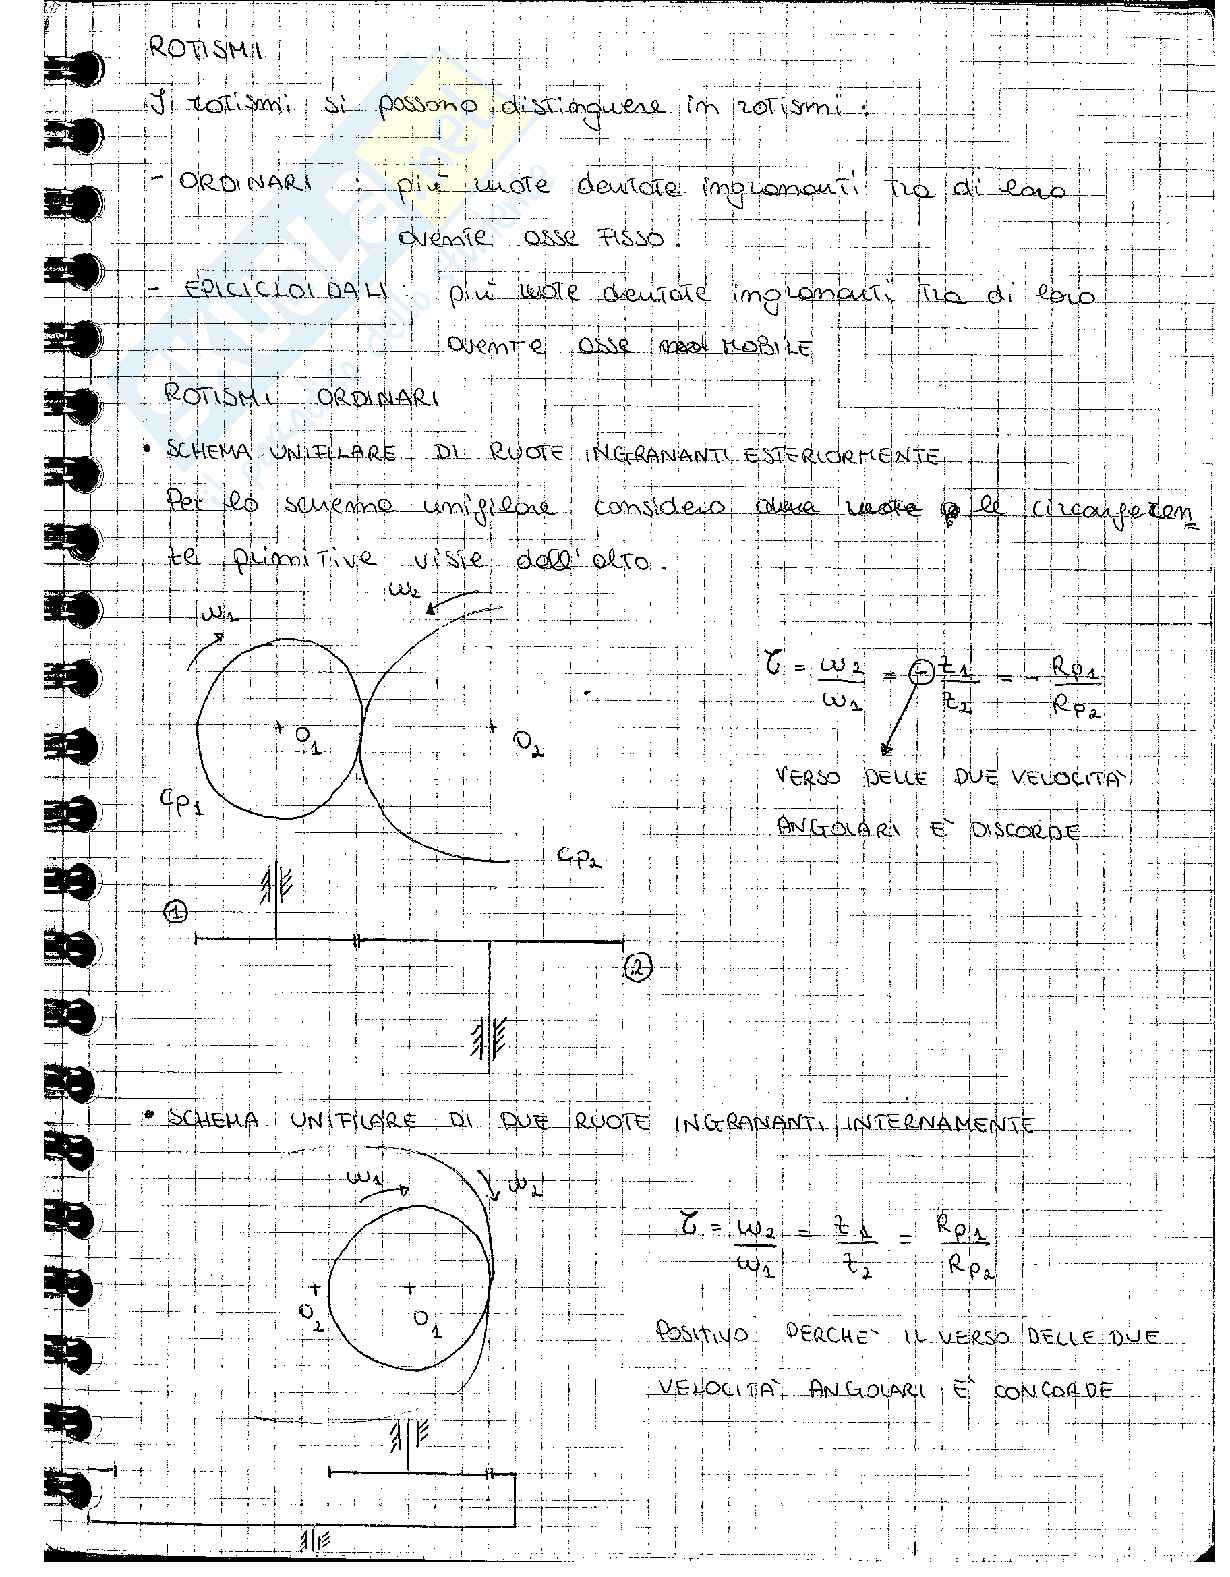 ROTISMI
I rotismi si possono distinguere in rotismi:
- ORDINARI : più ruote dentate ingrananti tra di loro
avente asse FISSO.
- EPICICLOIDALI : più ruote dentate ingrananti tra di loro
avente asse MOBILE
ROTISMI ORDINARI
• SCHEMA UNIFILARE DI RUOTE INGRANANTI ESTERIORMENTE
Per lo schema unifilare considero le circonferen
te primitive viste dall'alto.
ω1
ω2
τ = ω2/ω1 = - z1/z2 = - Rp1/Rp2
O1
O2
VERSO DELLE DUE VELOCITÀ
ANGOLARI È DISCORDE
Cp1
Cp2
1
2
• SCHEMA UNIFILARE DI DUE RUOTE INGRANANTI INTERNAMENTE
ω1
ω2
τ = ω2/ω1 = z1/z2 = Rp1/Rp2
O2
O1
POSITIVO PERCHÈ IL VERSO DELLE DUE
VELOCITÀ ANGOLARI È CONCORDE